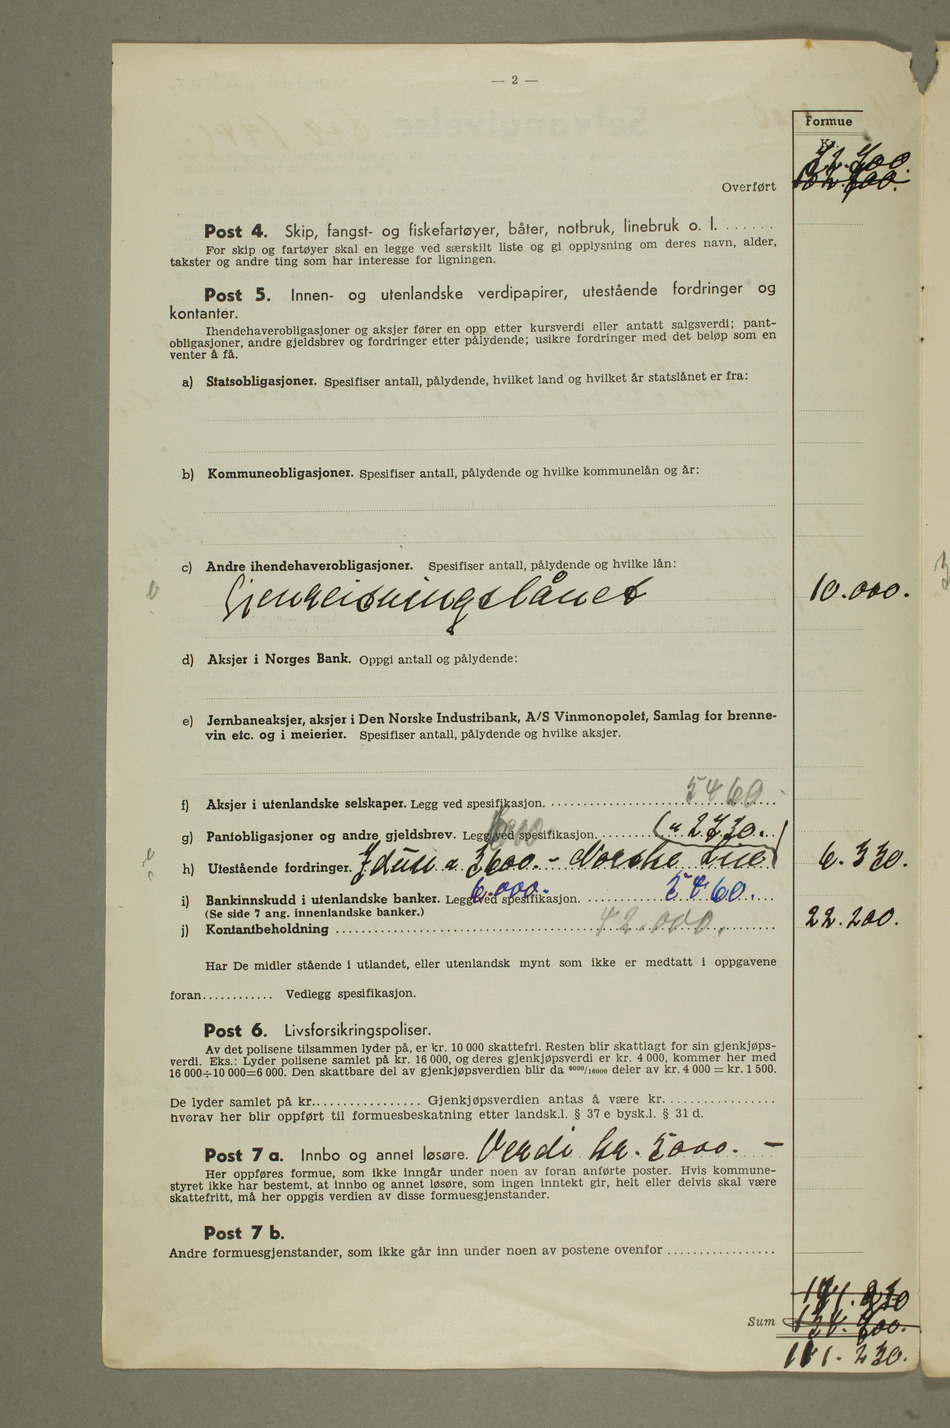 — 2 —
Formue
Kr.
Overført
Post 4. Skip, fangst- og fiskefartøyer, båter, notbruk, linebruk o. l. .......
For skip og fartøyer skal en legge ved særskilt liste og gi opplysning om deres navn, alder,
takster og andre ting som har interesse for ligningen.
Post 5. Innen- og utenlandske verdipapirer, utestående fordringer og
kontanter.
Ihendehaverobligasjoner og aksjer fører en opp etter kursverdi eller antatt salgsverdi; pant-
obligasjoner, andre gjeldsbrev og fordringer etter pålydende; usikre fordringer med det beløp som en
venter å få.
a) Statsobligasjoner. Spesifiser antall, pålydende, hvilket land og hvilket år statslånet er fra:
b) Kommuneobligasjoner. Spesifiser antall, pålydende og hvilke kommunelån og år:
c) Andre ihendehaverobligasjoner. Spesifiser antall, pålydende og hvilke lån:
Gjenreisningslånet 10.000.
d) Aksjer i Norges Bank. Oppgi antall og pålydende:
e) Jernbaneaksjer, aksjer i Den Norske Industribank, A/S Vinmonopolet, Samlag for brenne-
vin etc. og i meierier. Spesifiser antall, pålydende og hvilke aksjer.
f) Aksjer i utenlandske selskaper. Legg ved spesifikasjon. 5460
g) Pantobligasjoner og andre gjeldsbrev. Legg ved spesifikasjon. (a 2730.
h) Utestående fordringer. Idun a 3600.- Norske Liv) 6.330.
6.000. 5460.
i) Bankinnskudd i utenlandske banker. Legg ved spesifikasjon.
(Se side 7 ang. innenlandske banker.)
j) Kontantbeholdning 42.000. 22.200.
Har De midler stående i utlandet, eller utenlandsk mynt som ikke er medtatt i oppgavene
foran............ Vedlegg spesifikasjon.
Post 6. Livsforsikringspoliser.
Av det polisene tilsammen lyder på, er kr. 10 000 skattefri. Resten blir skattlagt for sin gjenkjøps-
verdi. Eks.: Lyder polisene samlet på kr. 16 000, og deres gjenkjøpsverdi er kr. 4 000, kommer her med
16 000÷10 000=6 000. Den skattbare del av gjenkjøpsverdien blir da 6000/16000 deler av kr. 4 000 = kr. 1 500.
De lyder samlet på kr................ Gjenkjøpsverdien antas å være kr.................
hvorav her blir oppført til formuesbeskatning etter landsk.l. § 37 e bysk.l. § 31 d.
Post 7 a. Innbo og annet løsøre. Verdi kr. 5000. -
Her oppføres formue, som ikke inngår under noen av foran anførte poster. Hvis kommune-
styret ikke har bestemt, at innbo og annet løsøre, som ingen inntekt gir, helt eller delvis skal være
skattefritt, må her oppgis verdien av disse formuesgjenstander.
Post 7 b.
Andre formuesgjenstander, som ikke går inn under noen av postene ovenfor .................
Sum
111.230.